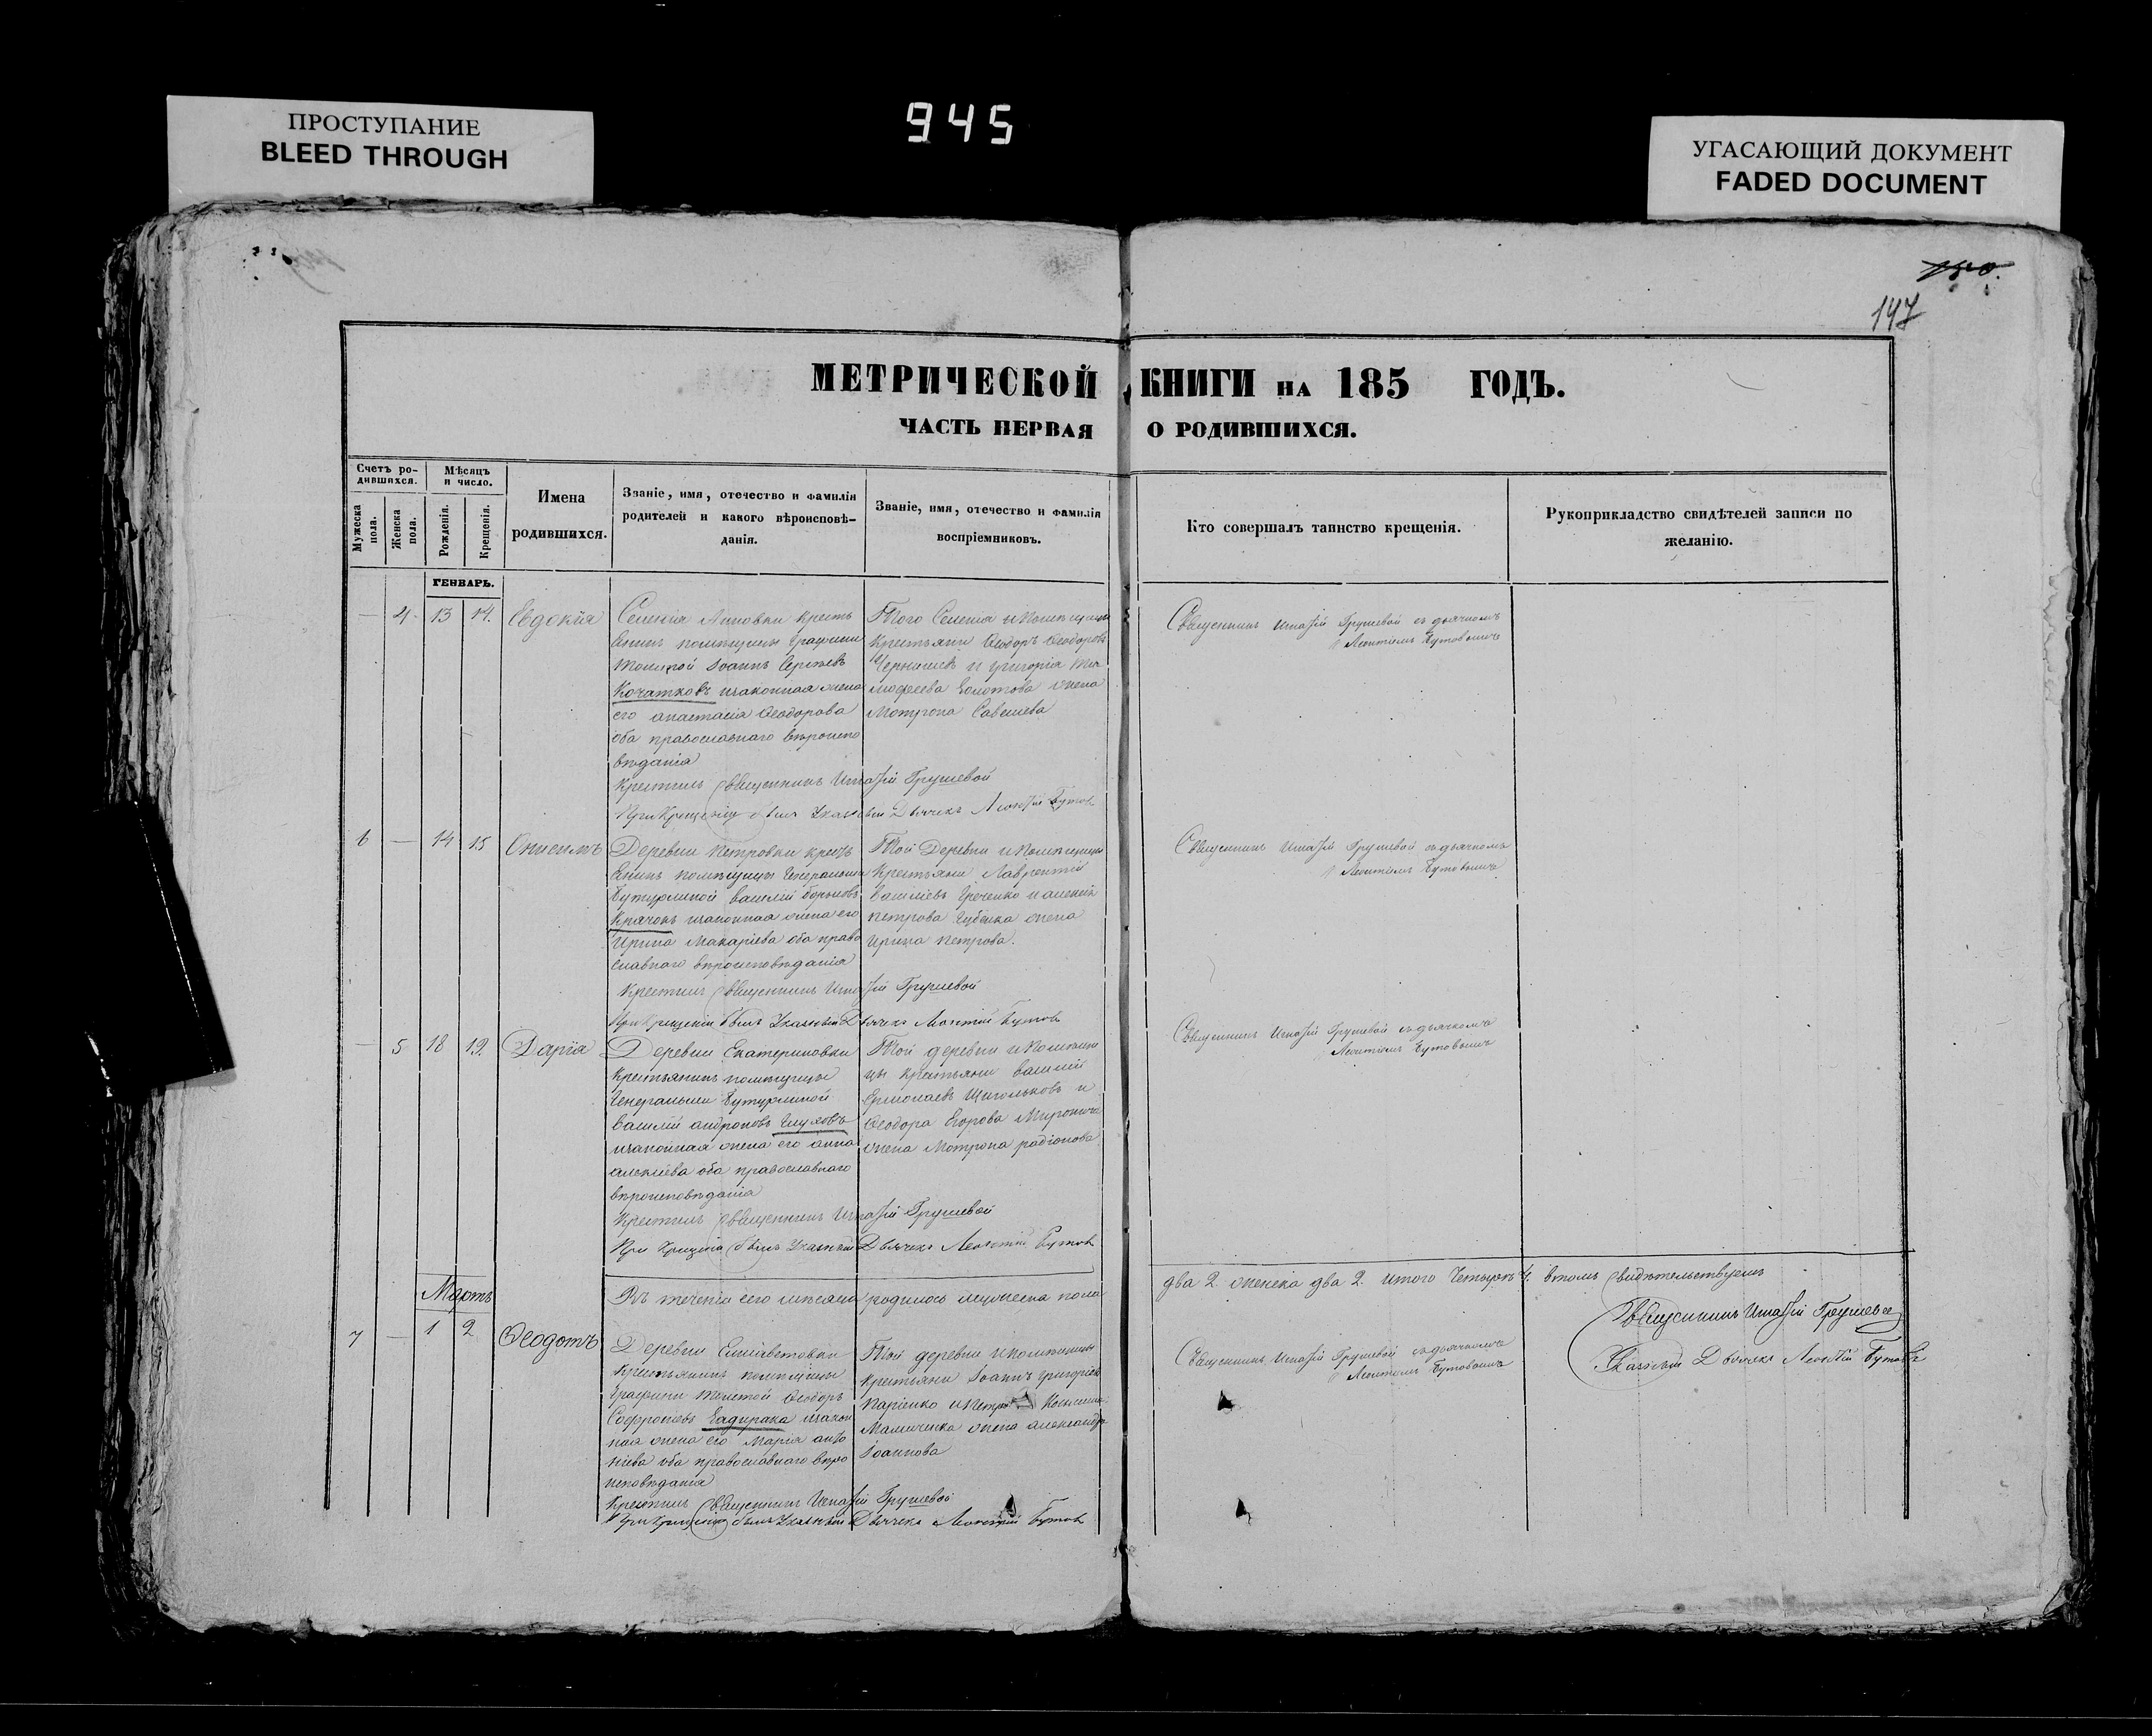 ПРОСТУПАНИЕ
BLEED THROUGH
945
УГАСАЮЩИЙ ДОКУМЕНТ
FADED DOCUMENT
147
МЕТРИЧЕСКОЙ КНИГИ НА 185 ГОДЪ.
ЧАСТЬ ПЕРВАЯ О РОДИВШИХСЯ.
Счетъ ро-
дившихся.
Мужеска
пола.
Женска
пола.
Мѣсяцъ
и число.
Рожденія.
Крещенія.
Имена
родившихся.
Званіе, имя, отечество и фамилія
родителей и какого вѣроисповѣ-
данія.
Званіе, имя, отечество и фамилія
воспріемниковъ.
Кто совершалъ таинство крещенія.
Рукоприкладство свидѣтелей записи по
желанію.
ГЕНВАРЬ.
— 4. 13 14. Евдокія
Селенія Липовки кресть
янинъ помѣщицы Графини
Толстой Іоаннъ Сергѣевъ
Кочатковъ изаконная жена
его анастасія Ѳеодорова
оба православнаго вѣроиспо
вѣданія
Того Селенія и помѣщицы
Крестьяни Ѳеодоръ Ѳеодоровъ
и Григорія Ти
моѳеева Золотова жена
Мотрона Савельева
Священникъ Игнатій Грушевой съ дьячкомъ
Леонтіемъ Бутовымъ
Крестилъ Священникъ Игнатій Грушевой
При Крещеніи былъ Указный Дьячекъ Леонтій Бутовъ
6 — 14 15 Онисимъ
Деревни Петровки кресть
янинъ помѣщицы Генеральши
Бутурлиной василій
Крячокъ изаконная жена его
Ирина Макаріева оба право
славнаго вѣроисповѣданія
Той Деревни и Помѣщицы
Крестьяни Лаврентій
василіевъ и алексія
петрова жена
Ирина петрова.
Священникъ Игнатій Грушевой съ дьячкомъ
Леонтіемъ Бутовымъ
Крестилъ Священникъ Игнатій Грушевой
При Крещеніи былъ Указный Дьячекъ Леонтій Бутовъ
— 5 18 19. Дарія
Деревни Екатериновки
Крестьянинъ помѣщицы
Генеральши Бутурлиной
василій андроновъ Глуховъ
изаконная жена его анна
алексіева оба православнаго
вѣроисповѣданія
Той деревни и помѣщи
цы крестьяни василій
Ермолаевъ Щегольковъ и
Ѳеодора Егорова
жена Мотрона радіонова
Священникъ Игнатій Грушевой съ дьячкомъ
Леонтіемъ Бутовымъ
Крестилъ Священникъ Игнатій Грушевой
При Крещеніи былъ Указный Дьячекъ Леонтій Бутовъ
Въ теченіи сего мѣсяца родилось мужеска пола
два 2 женска два 2. итого Четыре 4. втомъ свидѣтельствуемъ
Священникъ Игнатій Грушевой
Указный Дьячекъ Леонтій Бутовъ
Мартъ
7 — 1 2 Ѳеодотъ
Деревни Елисаветовки
Крестьянинъ помѣщицы
Графини Толстой Ѳеодоръ
Софроніевъ изакон
ная жена его Марія
оба православнаго вѣро
исповѣданія
Той деревни и помѣщицы
Крестьяни Іоаннъ Григоріевъ
жена александра
Іоаннова
Священникъ Игнатій Грушевой съ дьячкомъ
Леонтіемъ Бутовымъ
Крестилъ Священникъ Игнатій Грушевой
При Крещеніи былъ Указный Дьячекъ Леонтій Бутовъ